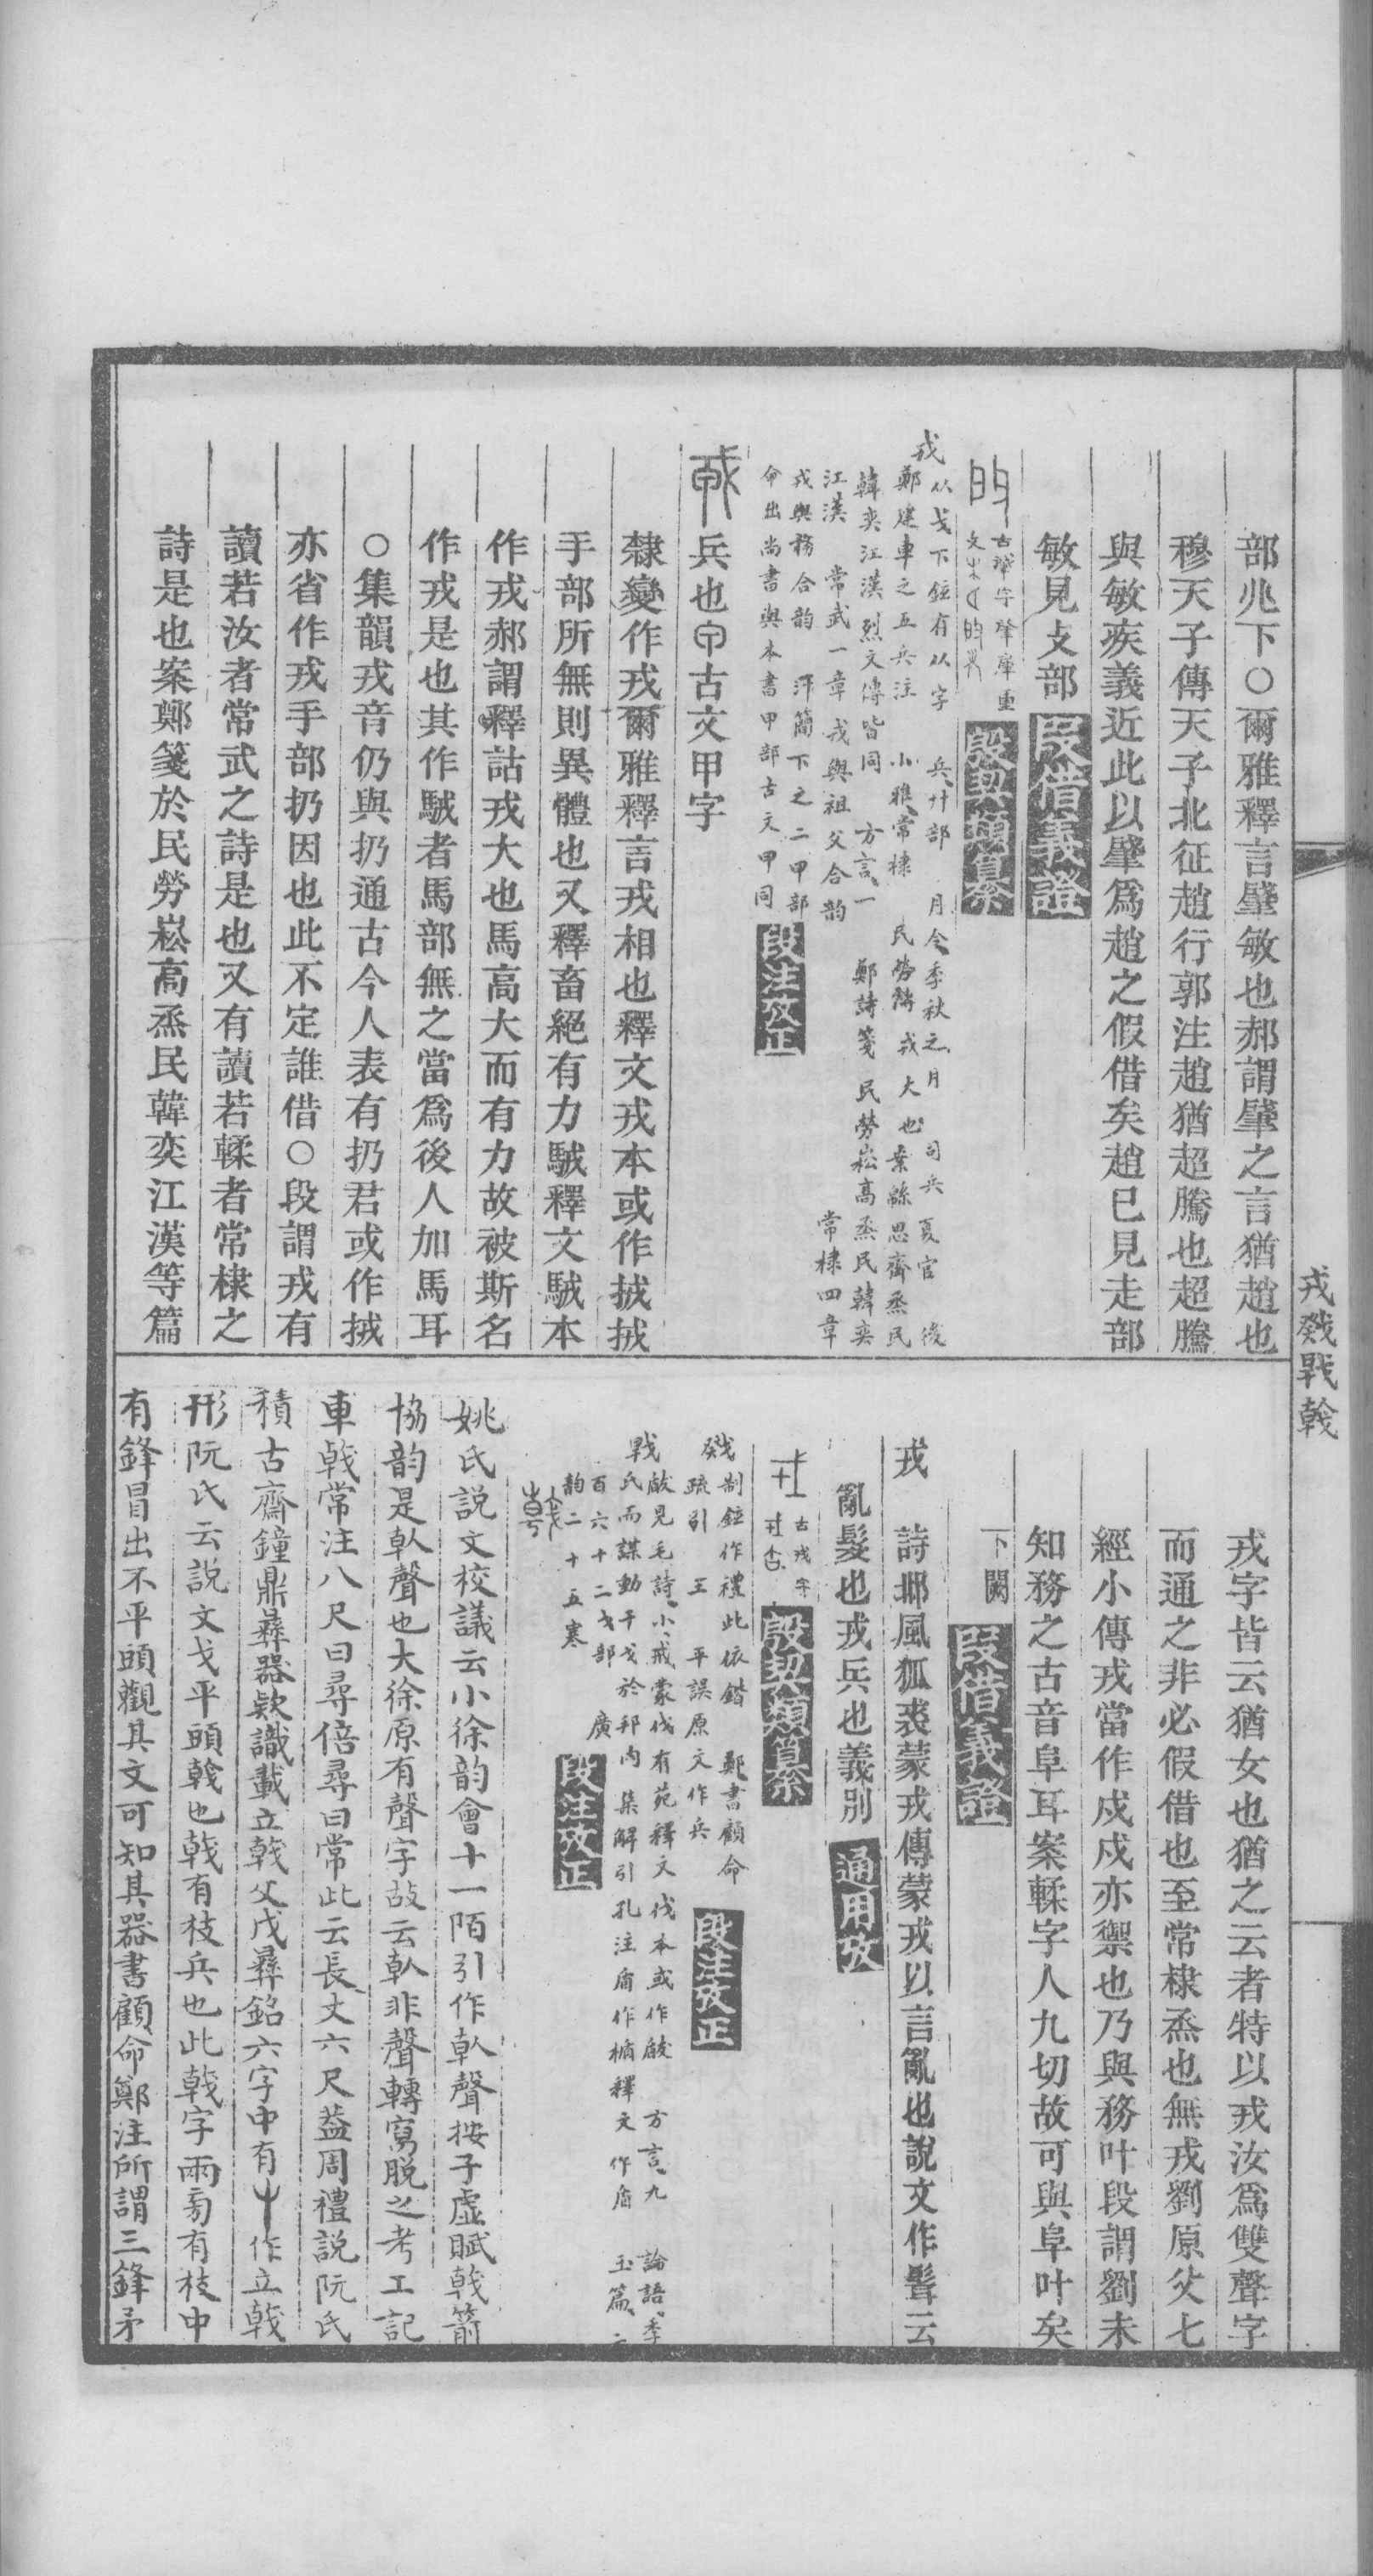 部兆下○爾雅釋言肈敏也郝謂肈之言猶趙也
穆天子傳天子北征趙行郭注趙猶超騰也超騰
與敏疾義近此以肈爲趙之假借矣趙巳見走部
敏見攴部 段借義證
古肈字肈庫重
文 段契類纂
戎 从戈下鉉有从字 兵廾部 月令季秋之月 司兵 夏官 後
鄭建車之五兵注 小雅常棣 民勞傳 戎大也 緜思齊烝民
韓奕江漢烈文傳皆同 方言一 鄭詩箋 民勞崧高烝民韓奕
江漢 常武一章戎與祖父合韵 常棣四章
戎與務合韵 汗簡下之二甲部
命出尚書與本書甲部古文甲同 段注攷正
兵也 古文甲字
隸變作戎爾雅釋言戎相也釋文戎本或作拔拔
手部所無則異體也又釋畜絕有力駥釋文駥本
作戎郝謂釋詁戎大也馬高大而有力故被斯名
作戎是也其作駥者馬部無之當爲後人加馬耳
○集韻戎音仍與扔通古今人表有扔君或作拔
亦省作戎手部扔因也此不定誰借○段謂戎有
讀若汝者常武之詩是也又有讀若輮者常棣之
詩是也案鄭箋於民勞崧高烝民韓奕江漢等篇
戎戣戰戟
戎字皆云猶女也猶之云者特以戎汝爲雙聲字
而通之非必假借也至常棣烝也無戎劉原父七
經小傳戎當作戍戍亦禦也乃與務叶段謂劉未
知務之古音阜耳案輮字人九切故可與阜叶矣
下闕 段借義證
戎 詩邶風狐裘蒙戎傳蒙戎以言亂也說文作髶云
亂髮也戎兵也義別 通用攷
古戎字 段契類纂
戣 制鉉作禮此依鍇 鄭書顧命
疏引王 平誤原文作兵 段注攷正
瞂見毛詩小戎蒙伐有苑釋文伐本或作瞂 方言九 論語季
氏而謀動干戈於邦內 集解引孔注盾作楯釋文作盾 玉篇二
百六十二戈部 廣
韵二十五寒 段注攷正
姚氏說文校議云小徐韵會十一陌引作倝聲按子虛賦戟箭
協韵是倝聲也大徐原有聲字故云倝非聲轉寫脫之考工記
車戟常注八尺曰尋倍尋曰常此云長丈六尺葢周禮說阮氏
積古齋鐘鼎彝器款識載立戟父戊彝銘六字中有 作立戟
形阮氏云說文戈平頭戟也戟有枝兵也此戟字兩旁有枝中
有鋒冒出不平頭觀其文可知其器書顧命鄭注所謂三鋒矛